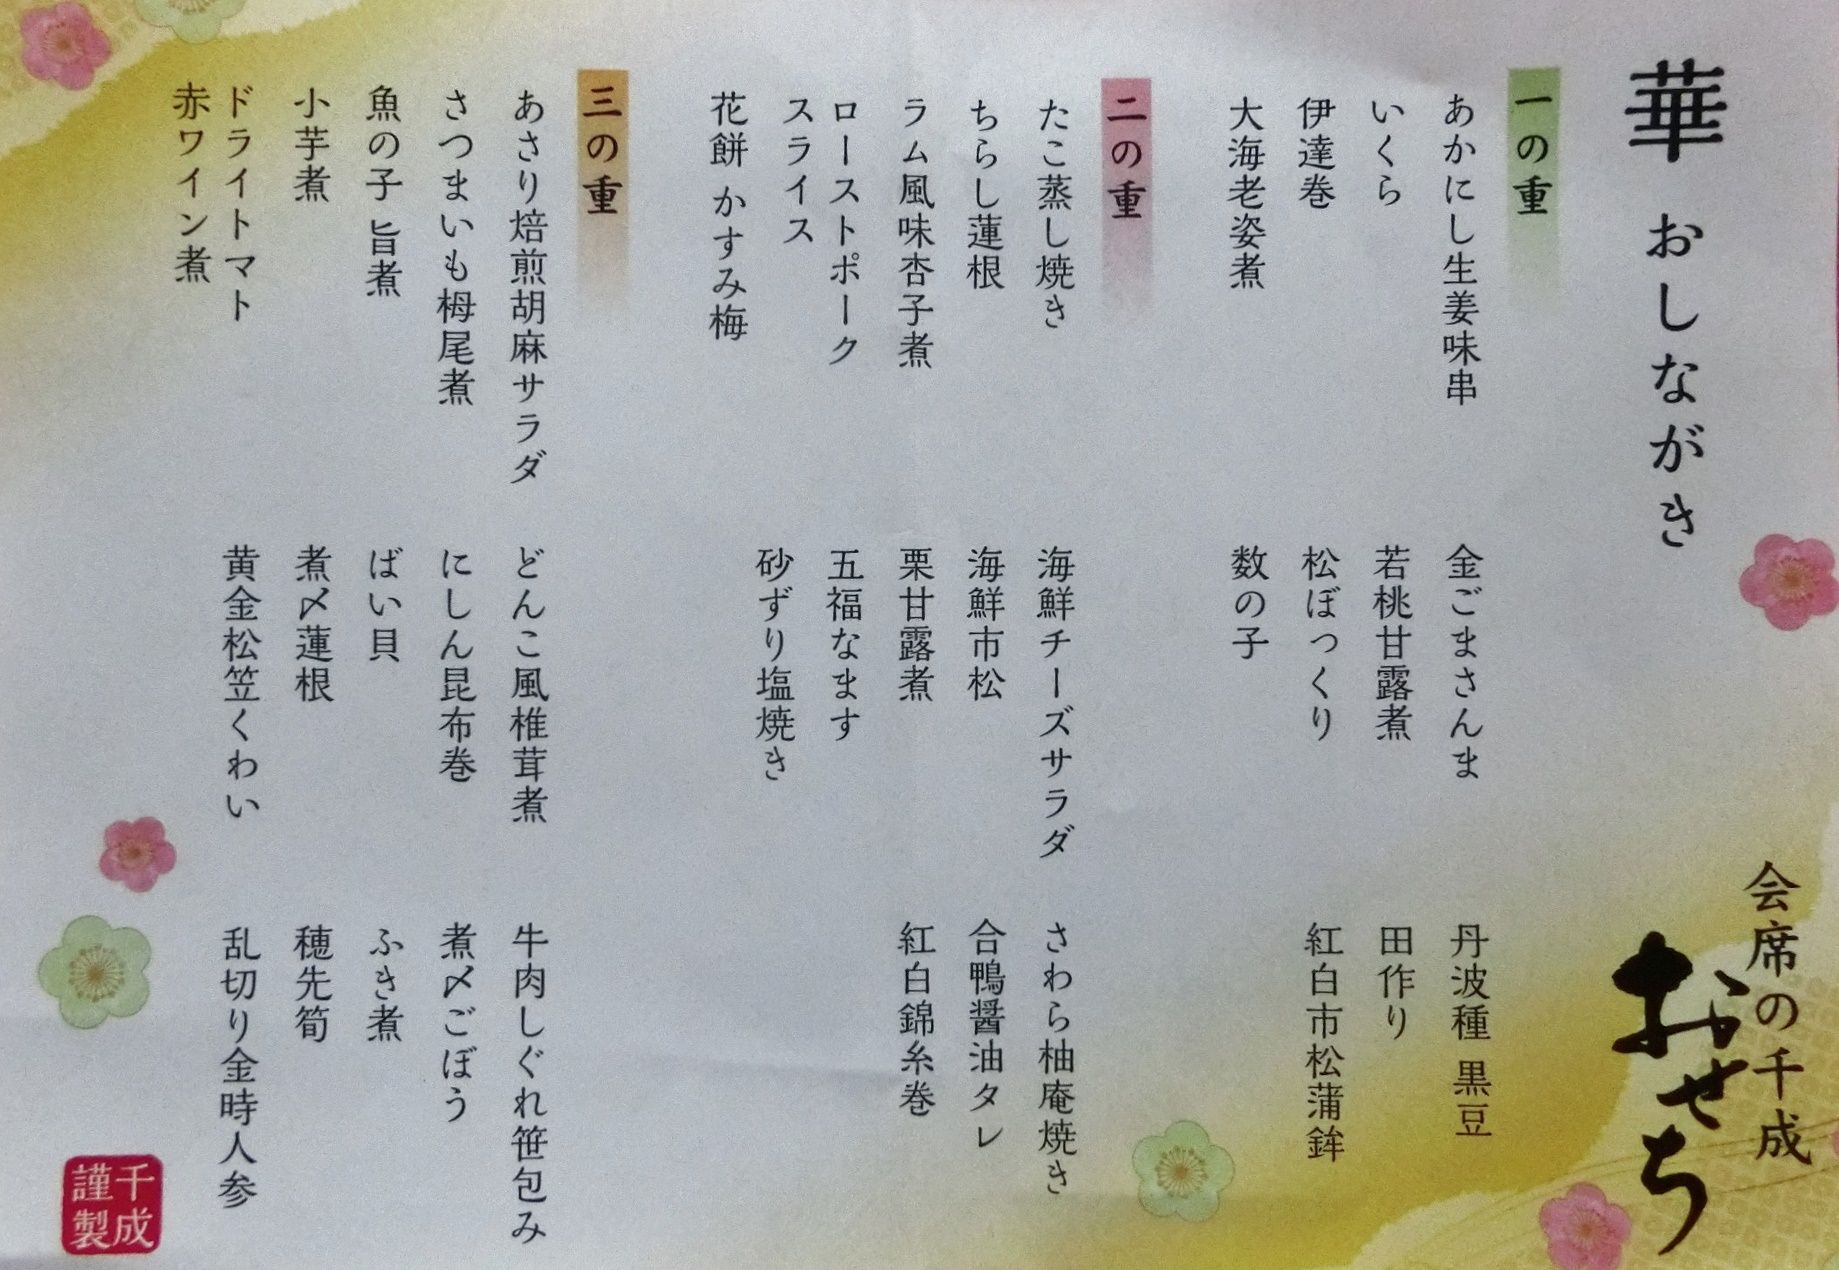 華 おしながき
一の重
あかにし生姜味串
いくら
伊達巻
大海老姿煮
金ごまさんま
若桃甘露煮
松ぼっくり
数の子
丹波種 黒豆
田作り
紅白市松蒲鉾
二の重
たこ蒸し焼き
ちらし蓮根
ラム風味杏子煮
ローストポーク
スライス
花餅 かすみ梅
海鮮チーズサラダ
海鮮市松
栗甘露煮
五福なます
砂ずり塩焼き
さわら柚庵焼き
合鴨醤油タレ
紅白錦糸巻
三の重
あさり焙煎胡麻サラダ
さつまいも栂尾煮
魚の子 旨煮
小芋煮
ドライトマト
赤ワイン煮
どんこ風椎茸煮
にしん昆布巻
ばい貝
煮〆蓮根
黄金松笠くわい
牛肉しぐれ笹包み
煮〆ごぼう
ふき煮
穂先筍
乱切り金時人参
会席の千成
おせち
千成
謹製